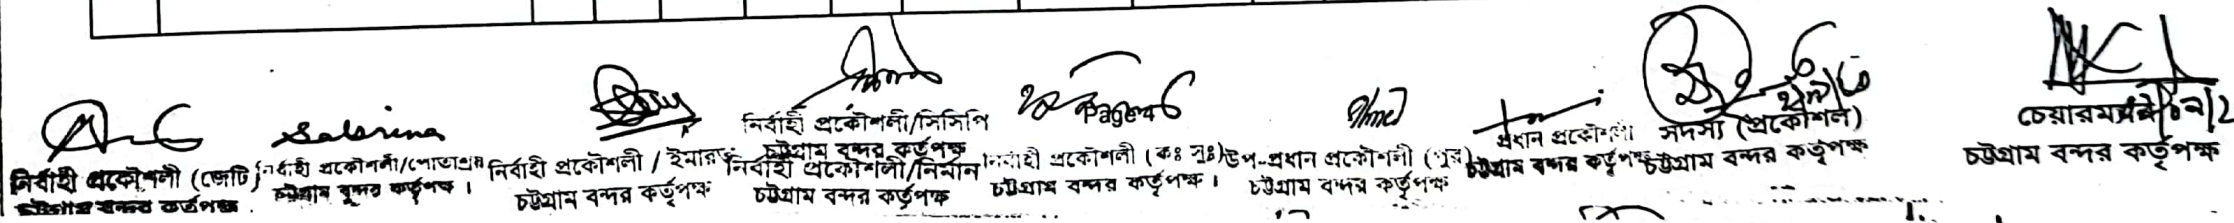 Sabrina
নির্বাহী প্রকৌশলী (জেটি)
চট্টগ্রাম বন্দর কর্তৃপক্ষ
নির্বাহী প্রকৌশলী/পোতাশ্রয়
চট্টগ্রাম বন্দর কর্তৃপক্ষ।
নির্বাহী প্রকৌশলী / ইমারত
চট্টগ্রাম বন্দর কর্তৃপক্ষ
নির্বাহী প্রকৌশলী/সিসিপি
চট্টগ্রাম বন্দর কর্তৃপক্ষ
নির্বাহী প্রকৌশলী/নির্মান
চট্টগ্রাম বন্দর কর্তৃপক্ষ
নির্বাহী প্রকৌশলী (কঃ সুঃ)
চট্টগ্রাম বন্দর কর্তৃপক্ষ।
Ahmed
উপ-প্রধান প্রকৌশলী (পুর)
চট্টগ্রাম বন্দর কর্তৃপক্ষ
প্রধান প্রকৌশলী
চট্টগ্রাম বন্দর কর্তৃপক্ষ
সদস্য (প্রকৌশল)
চট্টগ্রাম বন্দর কর্তৃপক্ষ
চেয়ারম্যান
চট্টগ্রাম বন্দর কর্তৃপক্ষ